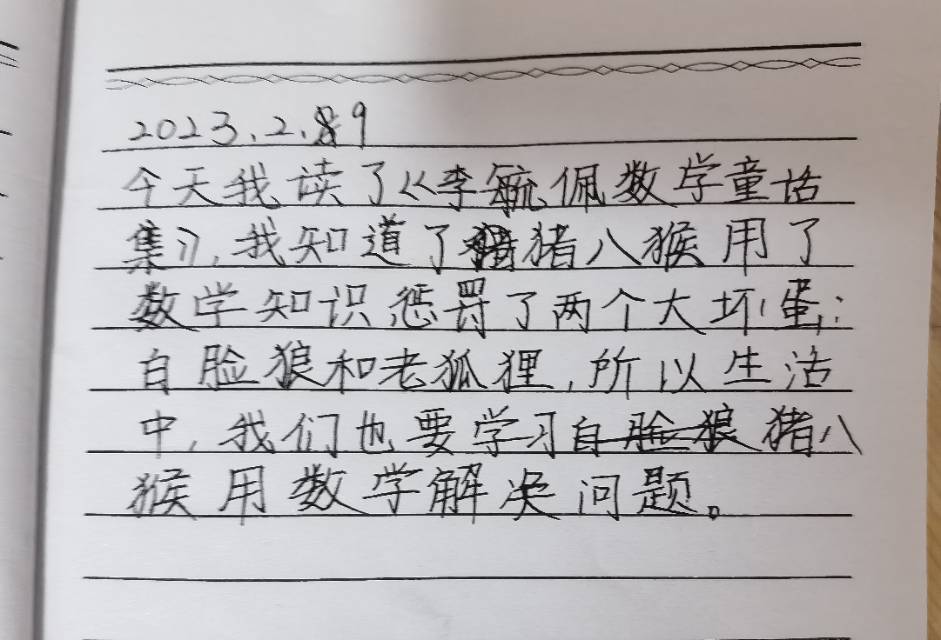 2023.2.9
今天我读了《李毓佩数学童话
集》,我知道了猪八猴用了
数学知识惩罚了两个大坏蛋:
白脸狼和老狐狸,所以生活
中,我们也要学习猪八
猴用数学解决问题。